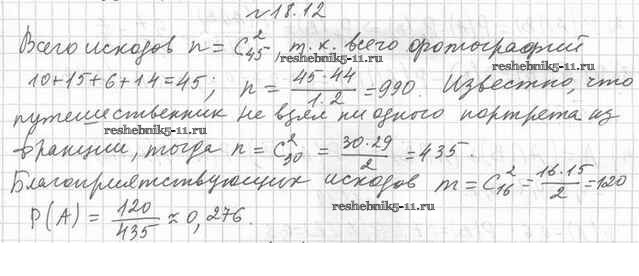 №18.12
Всего исходов n = C²₄₅, т.к. всего фотографий
10+15+6+14=45; n = 45·44/1·2 = 990. Известно, что
путешественник не взял ни одного портрета из
Франции, тогда n = C²₃₀ = 30·29/2 = 435.
Благоприятствующих исходов m = C²₁₆ = 16·15/2 = 120
P(A) = 120/435 ≈ 0,276.
reshebnik5-11.ru
reshebnik5-11.ru
reshebnik5-11.ru
reshebnik5-11.ru